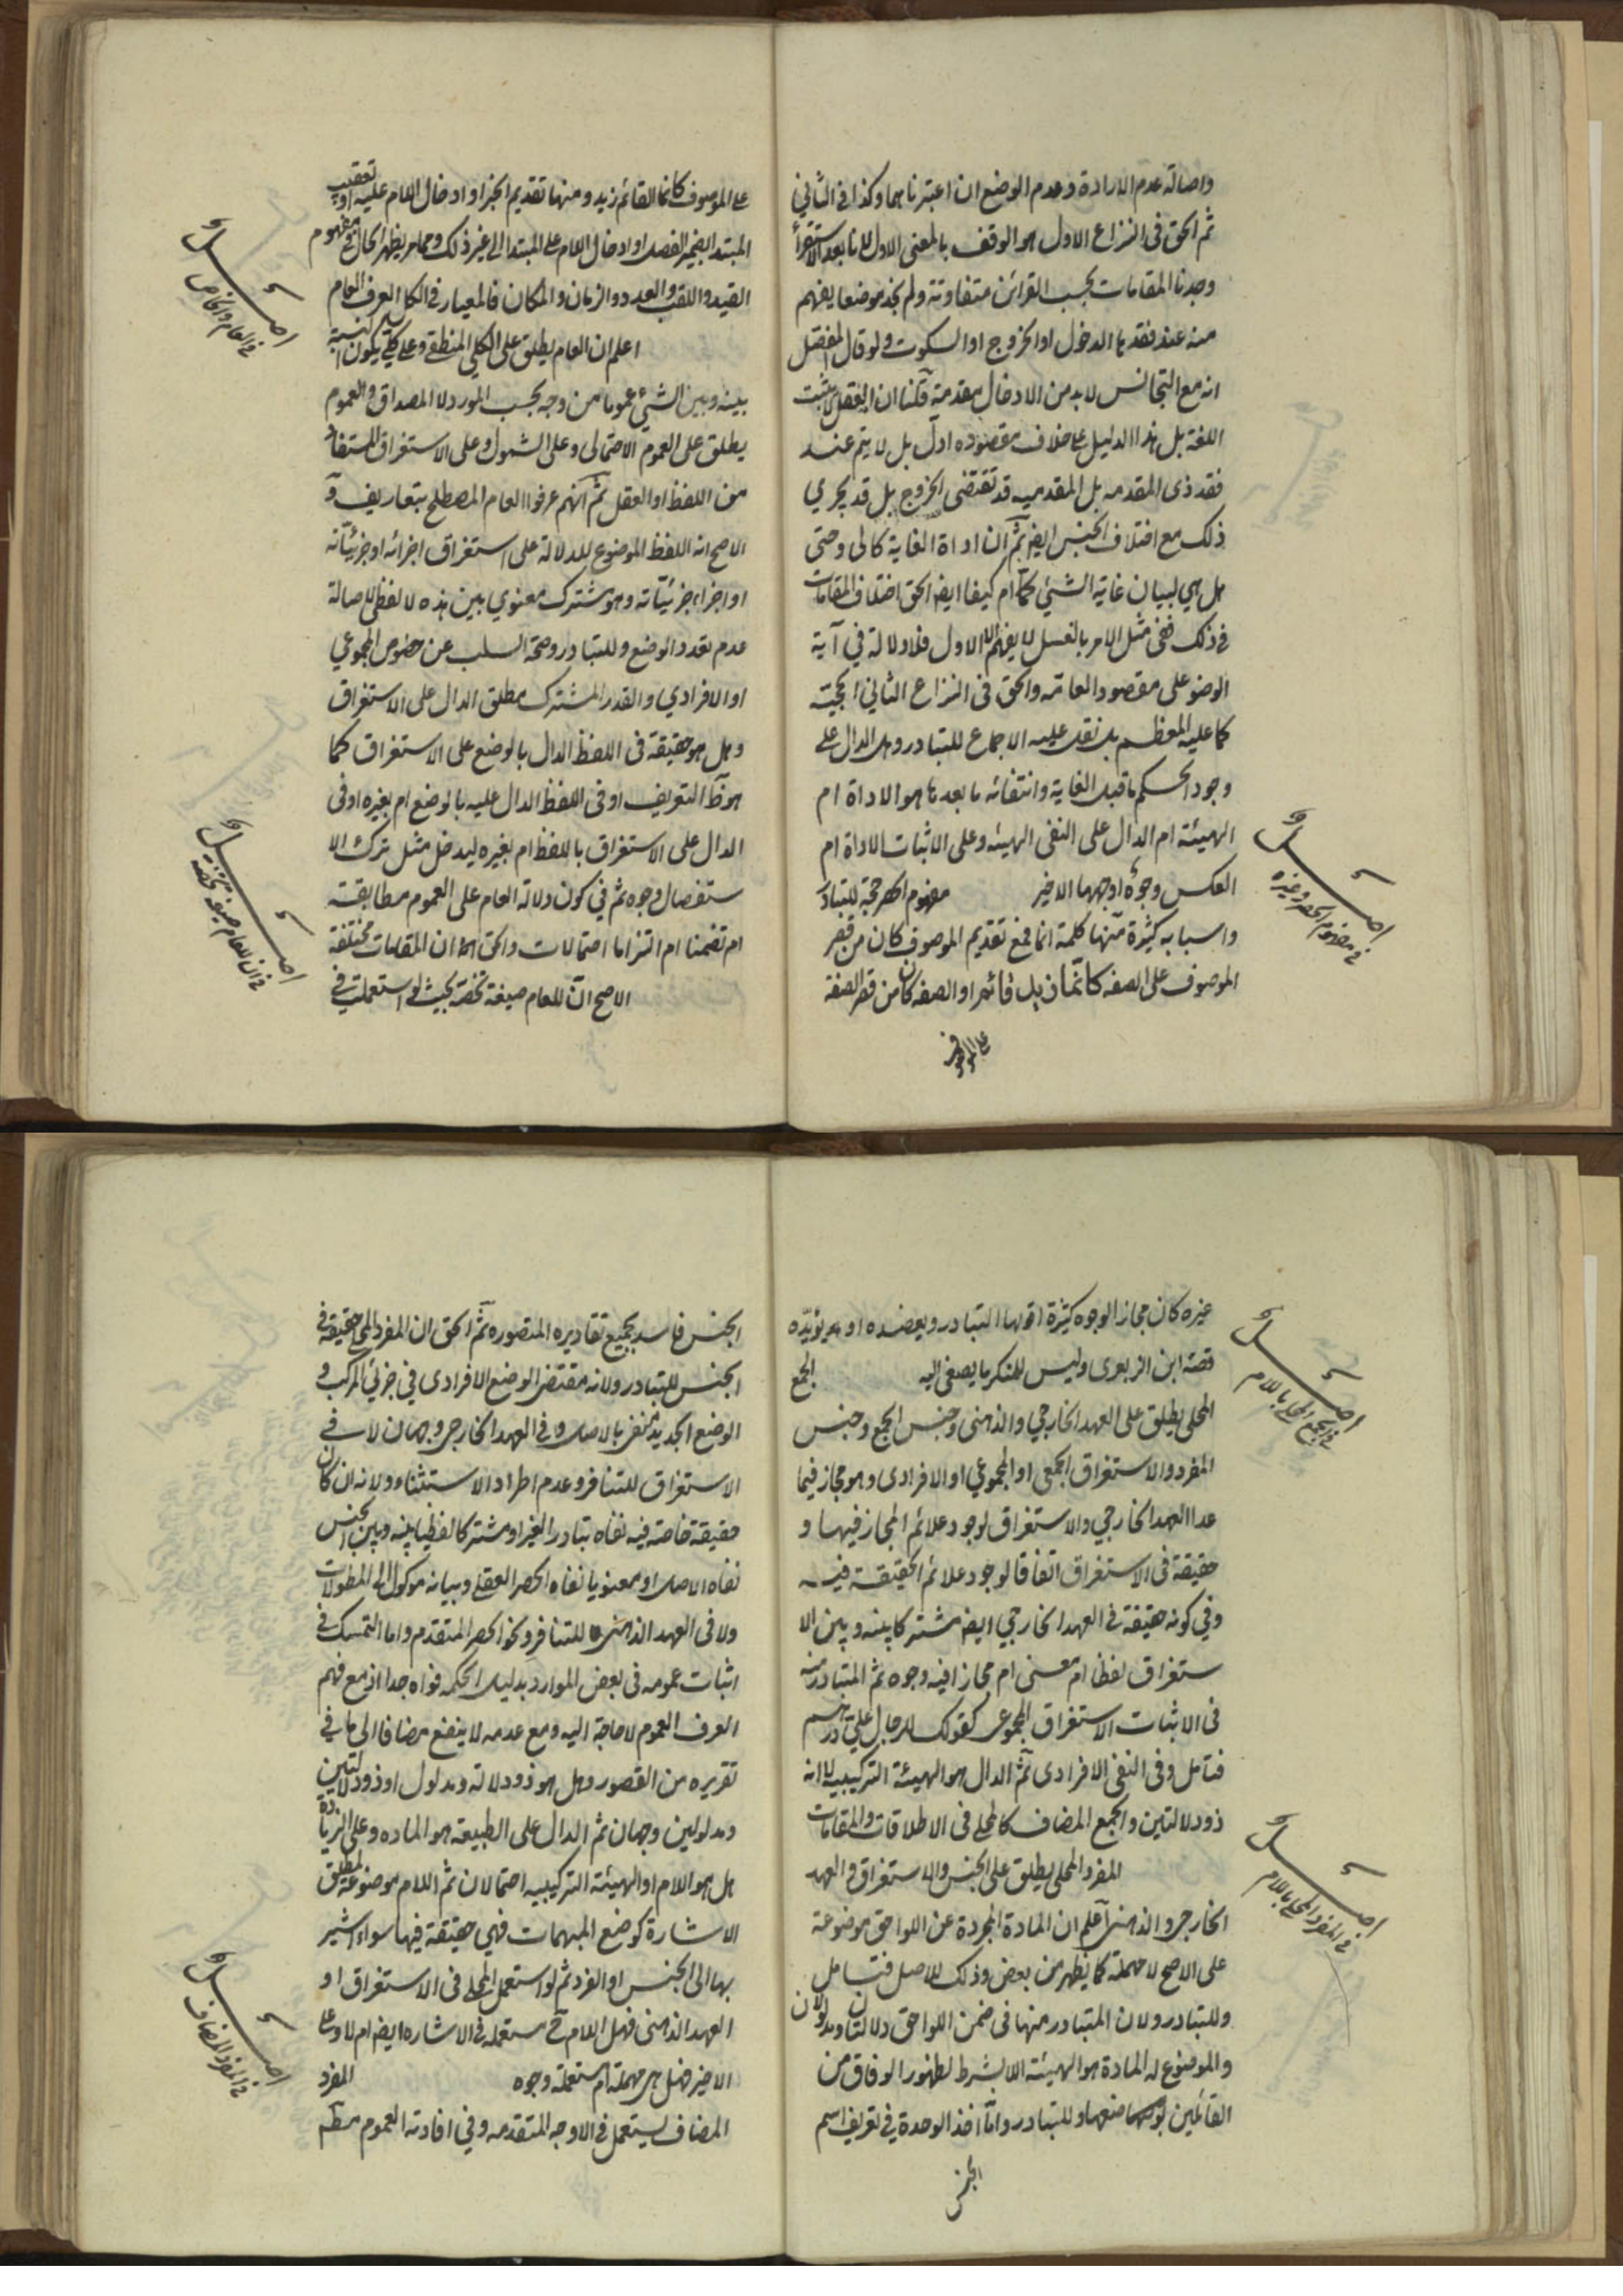 واصالة عدم الارادة وعدم الوضع ان اعتبرناهما وكذا فى الثانى
ثم الحق فى النزاع الاول هو الوقف بالمعنى الاول لانا بعد الاستقرأ
وجدنا المقامات بحسب القرائن متفاوتة ولم نجد موضعا يفهم
منه عند فقدها الدخول او الخروج او السكوت ولو قال المفصل
انه مع التجانس لا بد من الادخال مقدمة قلنا ان العقل لا يثبت
اللغة بل هذا الدليل على خلاف مقصوده ادل بل لا يتم عند
فقد ذى المقدمه بل المقدميه قد تقتضى الخروج بل قد يجري
ذلك مع اختلاف الجنس ايضا ثم ان اداة الغاية كالى وحتى
هل هي لبيان غاية الشيئ كما ام كيفا ايضا الحق اختلاف المقامات
فى ذلك ففى مثل الامر بالغسل لا يفهم الا الاول فلا دلالة في آية
الوضو على مقصود العامه والحق فى النزاع الثاني الحجية
كما عليه المعظم بل نقل عليه الاجماع للتبادر وهل الدال على
وجود الحكم ما قبل الغاية وانتفائه ما بعدها هو الاداة ام
الهيئة ام الدال على النفى الهيئه وعلى الاثبات الاداة ام
العكس وجوه اوجهها الاخير مفهوم الحصر حجة للتبادر
واسبابه كثيرة منها كلمة انما فمع تقديم الموصوف كان من قصر
الموصوف على الصفه كانما زيد قائم او الصفه كان من قصر الصفة
على الموصوف
اصل
فى مفهوم الحصر وغيره
على الموصوف كانما القائم زيد ومنها تقديم الخبر او ادخال اللام عليه او تعقيب
المبتدا بضمير الفصل او ادخال اللام على المبتدا الى غير ذلك ومما مر يظهر الحال فى مفهوم
القيد واللقب والعدد والزمان والمكان فالمعيار فى الكل العرف العام
اعلم ان العام يطلق على الكلي المنطقي وعلى كلي يكون النسبة
بينه وبين الشيئ عموما من وجه بحسب المورد لا المصداق والعموم
يطلق على العموم الاحتمالى وعلى الشمول وعلى الاستغراق المستفاد
من اللفظ او العقل ثم انهم عرفوا العام المصطلح بتعاريف و
الاصح انه اللفظ الموضوع للدلالة على استغراق اجزائه او جزئياته
او اجزاء جزئياته وهو مشترك معنوي بين هذه لا لفظى لاصالة
عدم تعدد الوضع وللتبادر وصحة السلب عن خصوص المجموعي
او الافرادي والقدر المشترك مطلق الدال على الاستغراق
وهل هو حقيقة فى اللفظ الدال بالوضع على الاستغراق كما
هو ظ التعريف او فى اللفظ الدال عليه بالوضع ام بغيره او فى
الدال على الاستغراق باللفظ ام بغيره ليدخل مثل ترك الا
ستفصال وجوه ثم في كون دلالة العام على العموم مطابقة
ام تضمنا ام التزاما احتمالات والحق ان المقامات مختلفة
الاصح ان للعام صيغة تخصه بحيث لو استعملت في
اصل
فى العام والخاص
اصل
فى ان للعام صيغة تخصه
غيره كان مجازا لوجوه كثيرة اقولها التبادر ويعضده او يؤيده
قصة ابن الزبعرى وليس للمنكر ما يصغى اليه الجمع
المحلى يطلق على العهد الخارجي والذهنى وجنس الجمع وجنس
المفرد والاستغراق الجمعى او المجموعي او الافرادى وهو مجاز فيما
عدا العهد الخارجي والاستغراق لوجود علائم المجاز فيها و
حقيقة فى الاستغراق اتفاقا لوجود علائم الحقيقة فيه
وفي كونه حقيقة فى العهد الخارجي ايضا مشتركا بينه وبين الا
ستغراق لفظا ام معنى ام مجازا فيه وجوه ثم المتبادر منه
فى الاثبات الاستغراق المجموعى كقولك للرجال علي درهم
فتامل وفى النفى الافرادى ثم الدال هو الهيئة التركيبيه لا انه
ذو دلالتين والجمع المضاف كالمحلى فى الاطلاقات والمقامات
المفرد المحلى يطلق على الجنس والاستغراق والعهد
الخارجى والذهنى اعلم ان المادة المجردة عن اللواحق موضوعة
على الاصح لا مهملة كما يظهر من بعض وذلك للاصل فتامل
وللتبادر ولان المتبادر منها فى ضمن اللواحق دلالتان ومدلولان
والموضوع له المادة هو الهيئة اللابشرط لظهور الوفاق من
القائلين بوضعها وللتبادر واما اخذ الوحدة فى تعريف اسم
الجنس
اصل
فى الجمع المحلى باللام
اصل
فى المفرد المحلى باللام
الجنس فاسد بجميع تقاديره المتصوره ثم الحق ان المفرد المحلى حقيقة فى
الجنس للتبادر ولانه مقتضى الوضع الافرادى في جزئي المركب و
الوضع الجديد منفى بالاصل وفى العهد الخارجى وجهان لا فى
الاستغراق للتنافر وعدم اطراد الاستثناء ولانه ان كان
حقيقة خاصة فيه نفاه تبادر الغير او مشتركا لفظيا بينه وبين الجنس
نفاه الاصل او معنويا نفاه الحصر العقلى وبيانه موكول الى المطولات
ولا فى العهد الذهنى للتنافر ونحو الحصر المتقدم واما التمسك فى
اثبات عمومه فى بعض الموارد بدليل الحكمه فواه جدا اذ مع فهم
العرف العموم لا حاجة اليه ومع عدمه لا ينفع مضافا الى ما فى
تقريره من القصور وهل هو ذو دلالة ومدلول او ذو دلالتين
ومدلولين وجهان ثم الدال على الطبيعة هو الماده وعلى الزيادة
هل هو اللام او الهيئة التركيبيه احتمالان ثم اللام موضوعة لمطلق
الاشارة كوضع المبهمات فهي حقيقة فيها سواء اشير
بها الى الجنس او الفرد ثم لو استعمل المحلى فى الاستغراق او
العهد الذهنى فهل اللام ح مستعملة فى الاشاره ايضا ام لا وعلى
الاخير فهل هى مهملة ام مستعملة وجوه المفرد
المضاف يستعمل فى الاوجه المتقدمه وفي افادته العموم مطلقا
اصل
فى المفرد المضاف